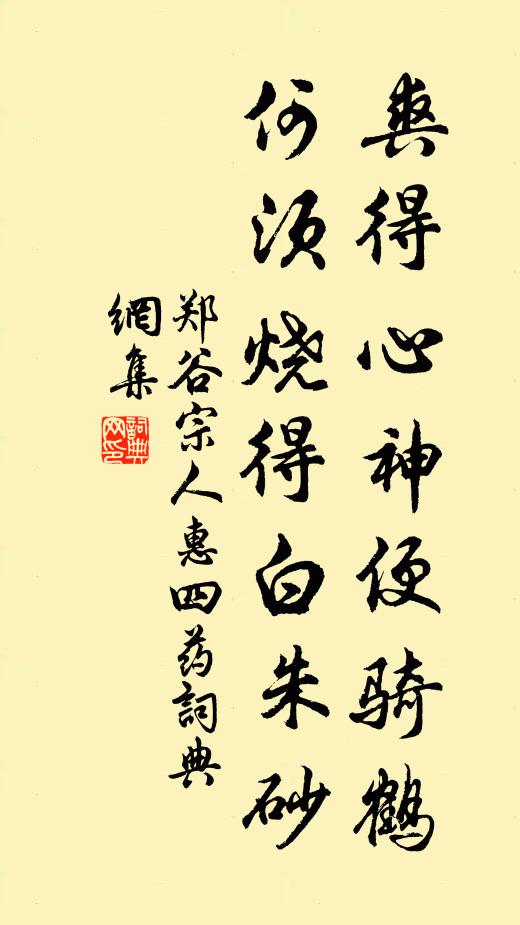 爽得心神便骑鹤
何须烧得白朱砂
郑谷宗人惠四药詞典
網集
詞典
网印